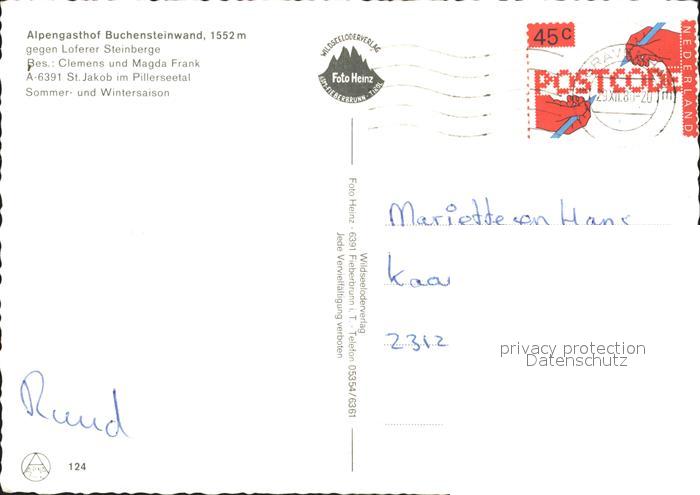 Alpengasthof Buchensteinwand, 1552 m
gegen Loferer Steinberge
Bes.: Clemens und Magda Frank
A-6391 St. Jakob im Pillerseetal
Sommer- und Wintersaison
WILDSEELODERVERLAG
Foto Heinz
FIEBERBRUNN - TIROL
45c
POSTCODE
NEDERLAND
Wildseeloderverlag
Foto Heinz - 6391 Fieberbrunn i. T. - Telefon 05354/6361
Jede Vervielfältigung verboten
Mariette en Hans
Kaa
2312
privacy protection
Datenschutz
Ruud
124